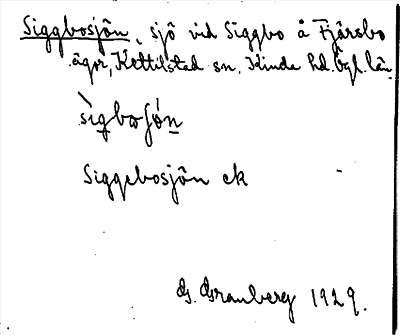 Siggbosjön, sjö vid Siggbo å Fjärsbo
ägor, Kettilstad sn, Kinda hd. Ögl. län
sìgboʃö́n
Siggebosjön ek
G. Granberg 1929.